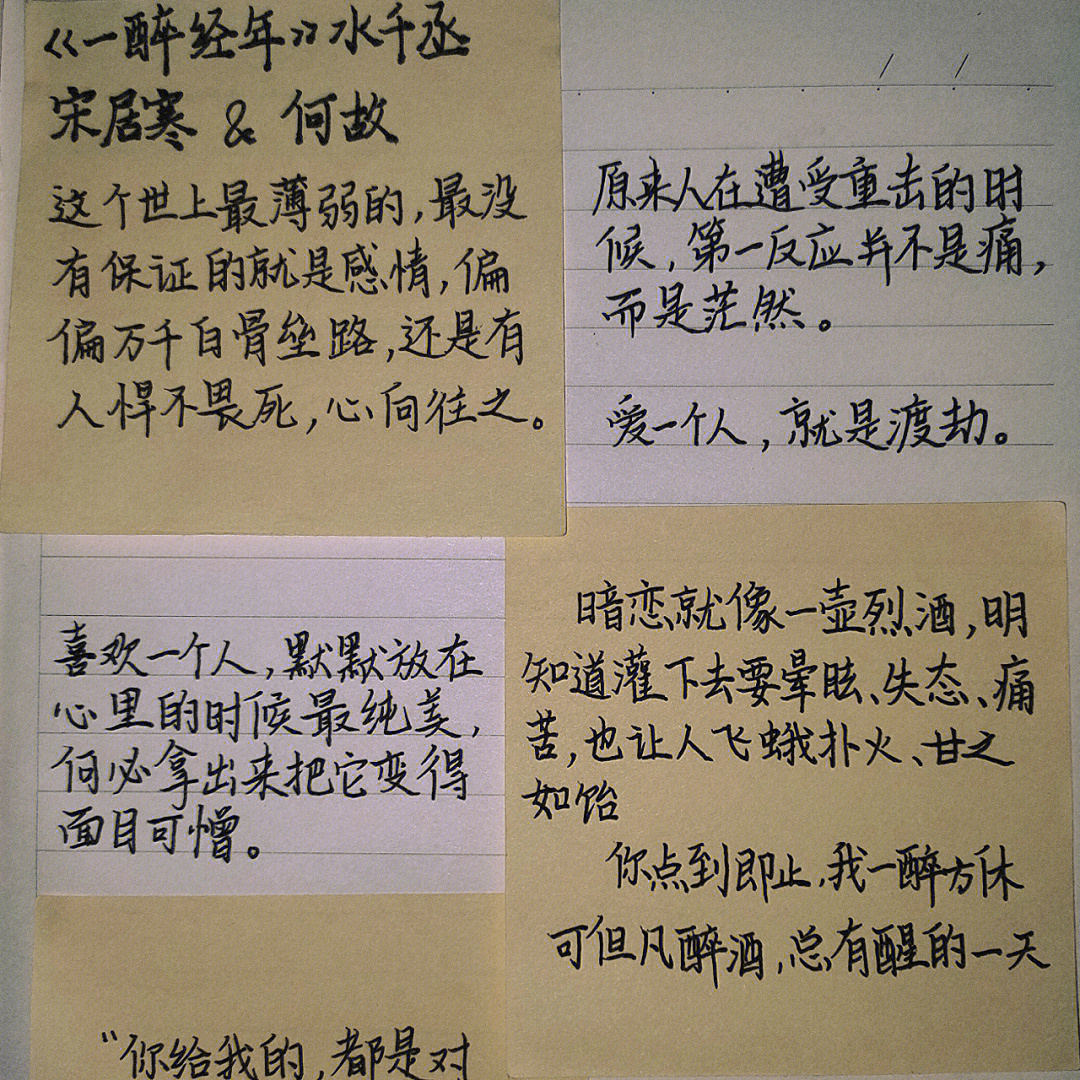 《一醉经年》水千丞
宋居寒 & 何故
这个世上最薄弱的,最没
有保证的就是感情,偏
偏万千白骨垒路,还是有
人悍不畏死,心向往之。
原来人在遭受重击的时
候,第一反应并不是痛,
而是茫然。
爱一个人,就是渡劫。
喜欢一个人,默默放在
心里的时候最纯美,
何必拿出来把它变得
面目可憎。
暗恋就像一壶烈酒,明
知道灌下去要晕眩、失态、痛
苦,也让人飞蛾扑火、甘之
如饴
你点到即止,我一醉方休
可但凡醉酒,总有醒的一天
“你给我的,都是对